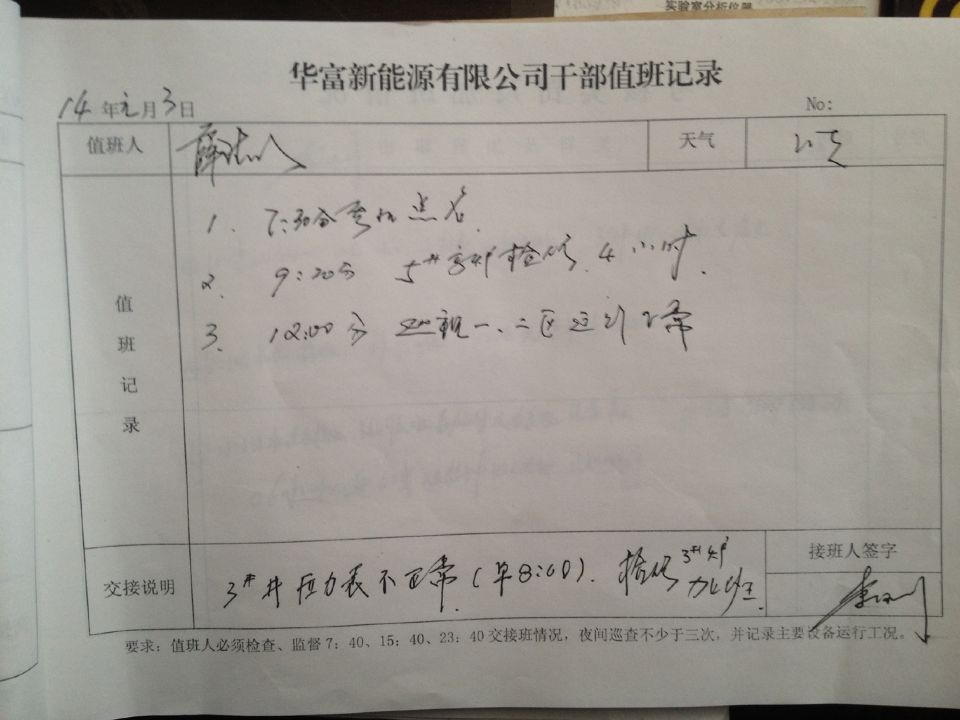 实验室分析仪器
华富新能源有限公司干部值班记录
14年元月3日 No:
值班人 薛 天气
值班记录
1. 7:30分 点名.
2. 9:20分 5# 检修 4小时.
3. 12:00分 巡视一、二区运行正常
交接说明 3#井压力表不正常(早8:00). 检修3#炉
接班人签字
李
要求:值班人必须检查、监督7:40、15:40、23:40交接班情况,夜间巡查不少于三次,并记录主要设备运行工况。